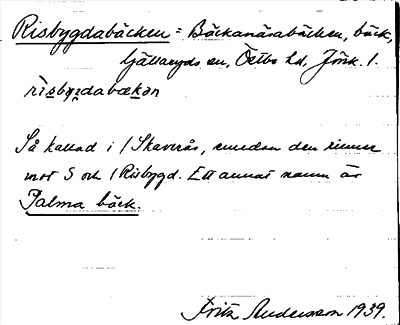 Risbygdabäcken = Bäckanäsabäcken, bäck,
Gällaryds sn, Östbo hd, Jönk. l.
rìsbygdabækən
Så kallad i / Skaverås, emedan den rinner
mot S och / Risbygd. Ett annat namn är
Palma bäck.
Fritz Andersson 1939.